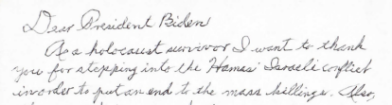 Dear President Biden
As a holocaust survivor I want to thank
you for stepping into the Hamas' Israeli conflict
in order to put an end to the mass killings. Also,